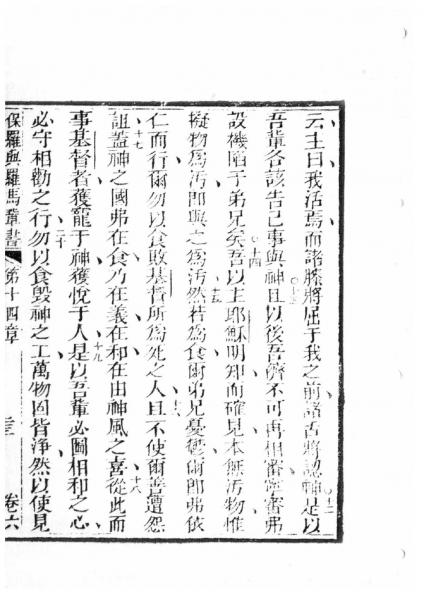 云主曰我活焉而諸膝將屈于我之前諸舌將認神十二是以
吾輩各該告己事與神十三且以後吾儕不可再相審寧審弗
設機陷于弟兄矣十四吾以主耶穌明知而確見本無污物惟
擬物爲污即與之爲污十五然若爲食爾弟兄憂鬱爾即弗依
仁而行爾勿以食敗基督所爲死之人十六且不使爾善遭怨
詛十七蓋神之國弗在食乃在義在和在由神風之喜十八從此而
事基督者獲寵于神獲悅于人十九是以吾輩必圖相和之心
必守相勸之行二十勿以食毀神之工萬物固皆淨然以使見
保羅與羅馬輩書 第十四章 卷六